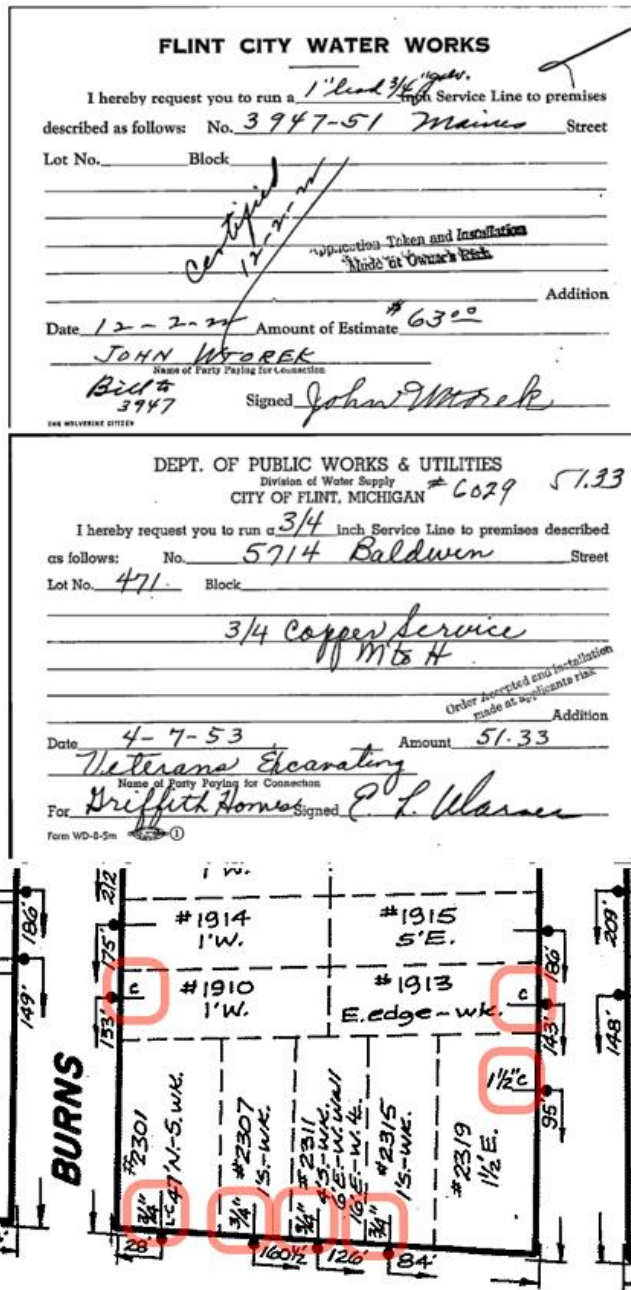 FLINT CITY WATER WORKS
I hereby request you to run a 1" lead 3/4" galv. inch Service Line to premises
described as follows: No. 3947-51 Maines Street
Lot No. Block
certified
12-2-22
Application Taken and Installation
Made at Owner's Risk
Addition
Date 12-2-22 Amount of Estimate $ 63 00
JOHN WTOREK
Name of Party Paying for Connection
Bill to
3947
Signed John Wtorek
THE WOLVERINE CITIZEN
DEPT. OF PUBLIC WORKS & UTILITIES
Division of Water Supply
CITY OF FLINT, MICHIGAN # 6029 51.33
I hereby request you to run a 3/4 inch Service Line to premises described
as follows: No. 5714 Baldwin Street
Lot No. 471. Block
3/4 Copper Service
M to H
Order Accepted and installation
made at applicants risk
Addition
Date 4-7-53 Amount 51.33
Veterans Excavating
Name of Party Paying for Connection
For Griffith Homes Signed E. L. Warner
Form WD-8-5m 1
1'W.
212
186'
#1914
1'W.
#1915
5'E.
175'
186'
209'
149'
c
#1910
1'W.
#1913
E.edge-wk.
c
133'
143'
148'
BURNS
1½"c
95'
#2301
47'N-S.WK.
#2307
1'S.-WK.
#2311
4'S-WK.
6'E-W.Wall
16'E-W.L.
#2315
1'S.-WK.
#2319
1½'E.
3/4"
L-C
3/4"
3/4"
3/4"
28'
160½'
126'
84'